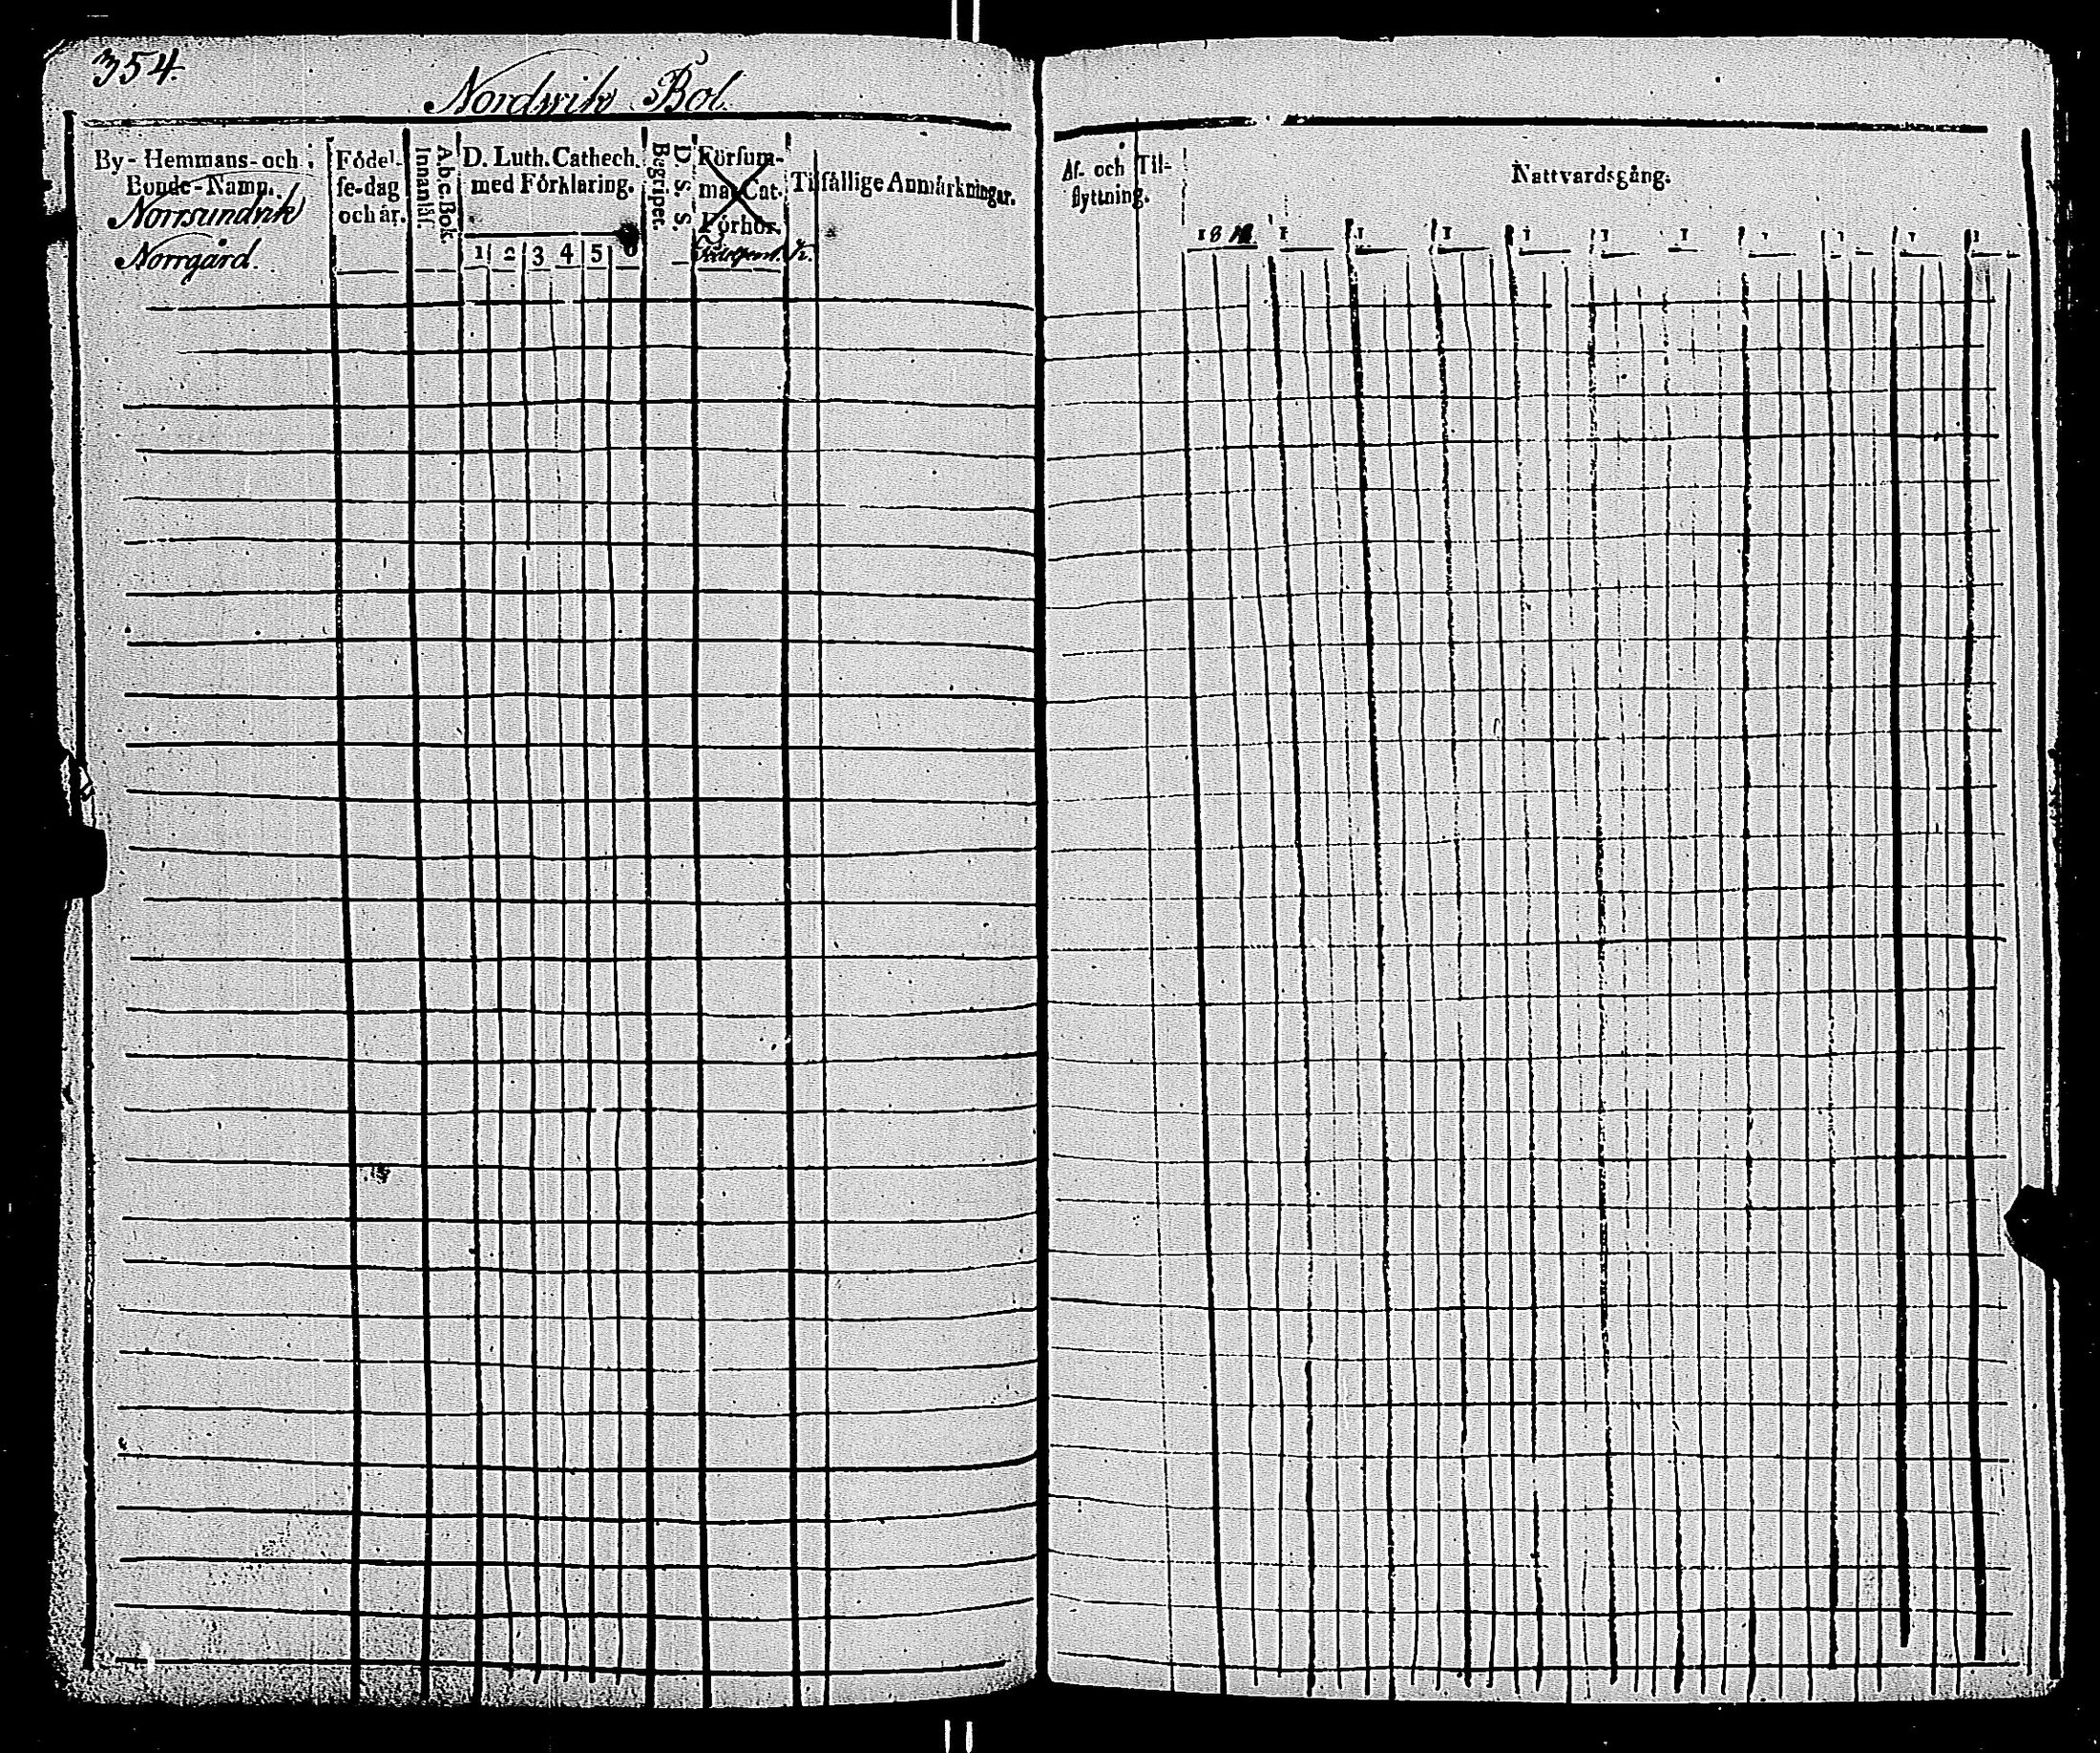 354.
Nordwik Bol.
By- Hemmans- och
Bonde-Namn.
Norrsundvik
Norrgård.
Födel-
se-dag
och år.
A.b.c.Bok.
Innanläs.
D. Luth. Cathech.
med Förklaring.
1 2 3 4 5 6
D. S. S.
Begriper.
Försum-
mat Cat.
Förhör.
Tilfällige Anmärkningar.
Af- och Til-
flyttning.
Nattvardsgång.
18
1 1 1 1 1 1 1 1 1 1